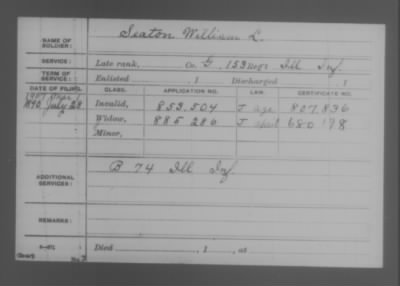 NAME OF SOLDIER: Seaton William L.
SERVICE: Late rank, Co. G, 153 Reg't Ill Inf.
TERM OF SERVICE: Enlisted , 1 Discharged , 1
DATE OF FILING. CLASS. APPLICATION NO. LAW. CERTIFICATE NO.
1907 Invalid, 853.504 J age 827.836
1890 July 28 Widow, 885 286 J 680 198
Minor,
ADDITIONAL SERVICES: B 74 Ill Inf
REMARKS:
Died , 1 , at